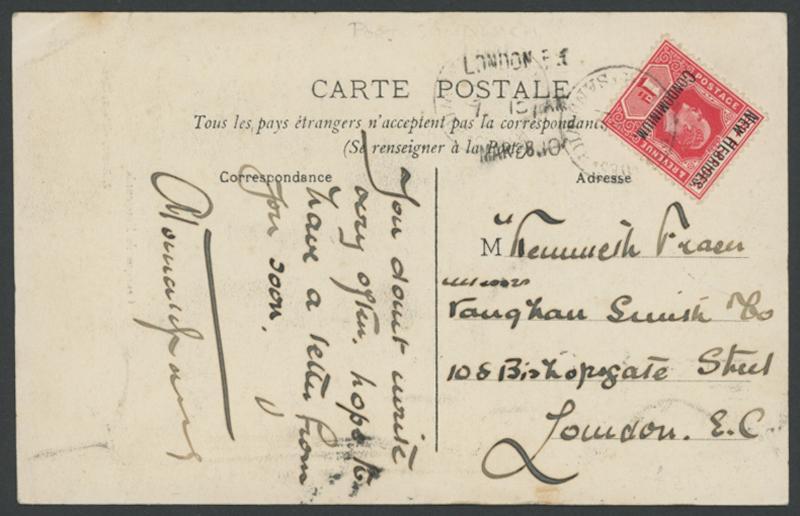 LONDON E.C
MAR 28 10
POSTAGE
& REVENUE
NEW HEBRIDES.
CONDOMINIUM.
CARTE POSTALE
Tous les pays étrangers n'acceptent pas la correspondance
(Se renseigner à la Poste)
Correspondance
Adresse
You dont write
very often. hope to
have a letter from
you soon.
Mr Kenneth Fraser
Vaughan Smith & Co
108 Bishopsgate Street
London. E.C